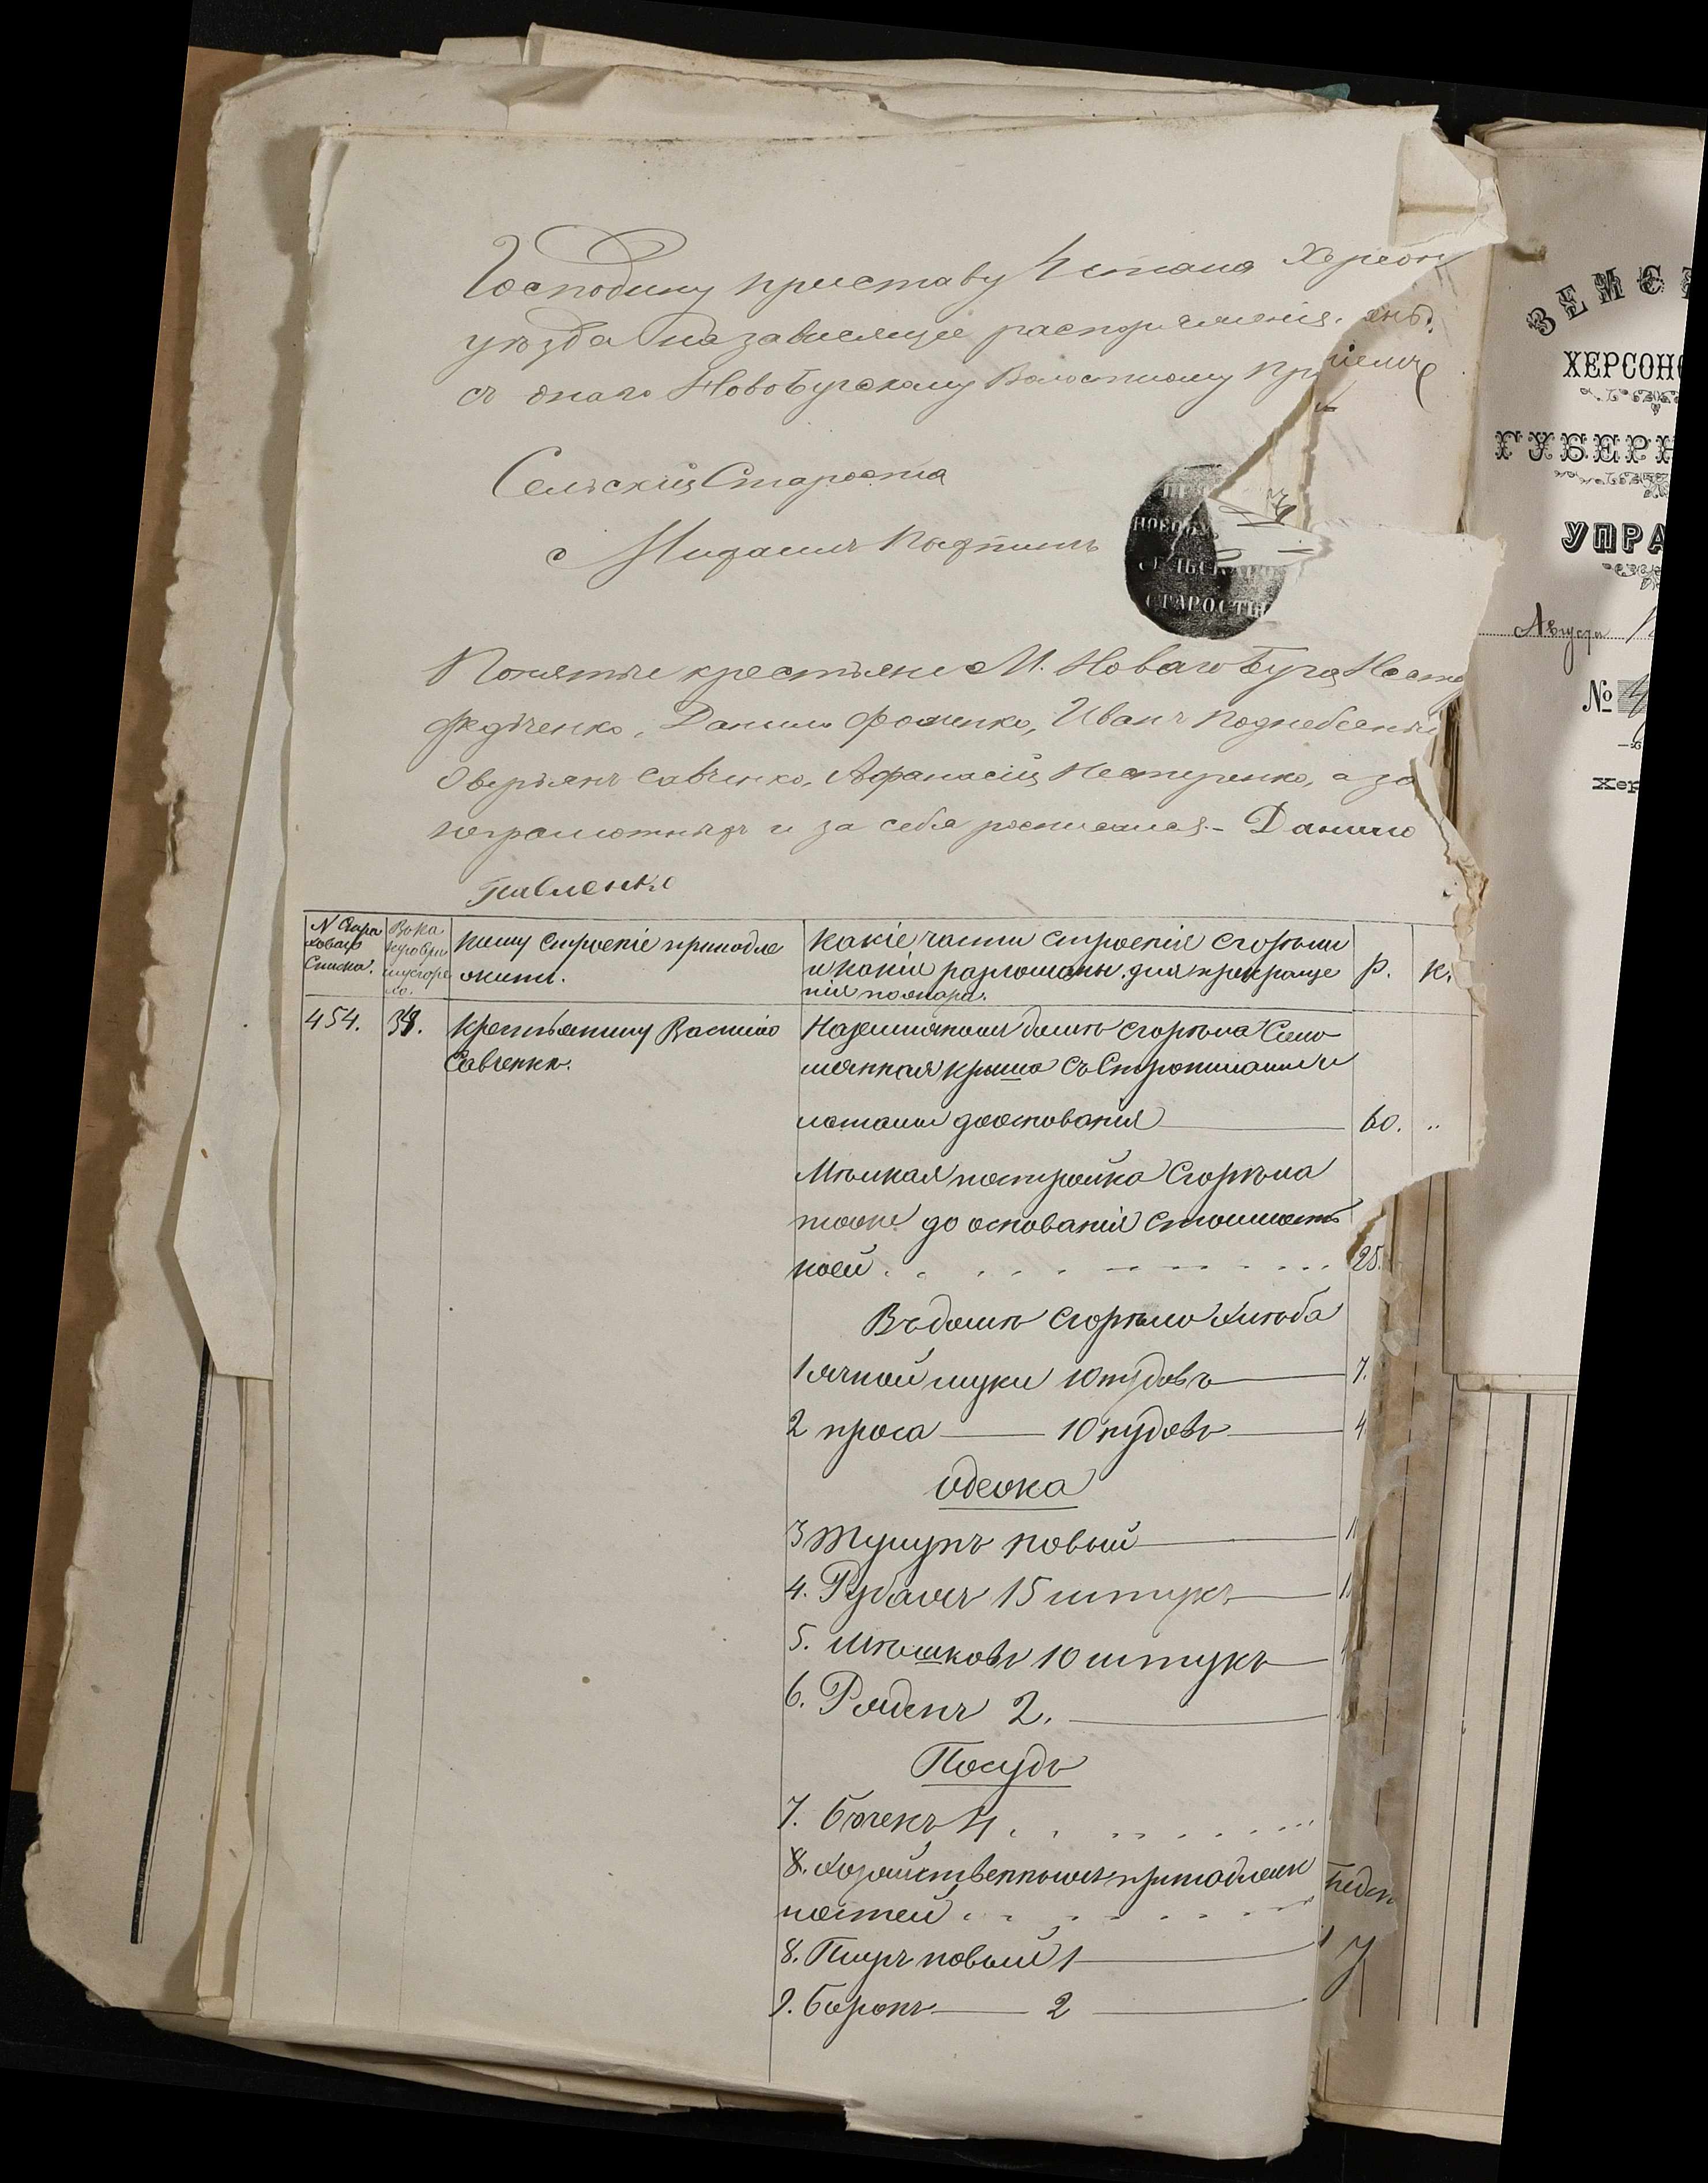 Господину приставу 4 стана Херсон
уѣзда на зависящее распоряженіе.
съ онаго Новобугскому Волостному
Сельскій Староста
НОВОБУ
СЕЛЬСКАГО
СТАРОСТЫ
Понятые крестьяне М. Новаго Буга
Федченко, Данило Фоменко, Иванъ Поднебесный
Оверьянъ Савченко, Афанасій Нестеренко, а за
неграмотныхъ и за себя росписался - Данило
Павленко
N Стра
ховаго
Списка.
кому строеніе принадле
житъ.
какіе части строенія сгорѣли
и какіе разломаны для прекраще
нія пожара.
р.
к.
454.
38.
Крестьянину Василію
Савченко.
На земляномъ домѣ сгорѣла Соло
мянная крыша съ Стропилами и
латами до основанія 60. „
Мѣлкая постройка Сгорѣла
тоже до основанія стоимость
коей 25.
Въ домѣ сгорѣло хлѣба
1 ячной муки 10 пудовъ 7.
2 проса 10 пудовъ 4
одежа
3 Тулупъ новый
4. Рубахъ 15 штукъ
5. Мѣшковъ 10 штукъ
6. Ряденъ 2.
Посуды
7. Бочекъ 4
8. Хозяйственныхъ принадлеж
ностей
8. Плугъ новый 1
9. Боронъ 2
ЗЕМС
ХЕРСОНС
ГУБЕРН
УПРА
Августа
№
Хер